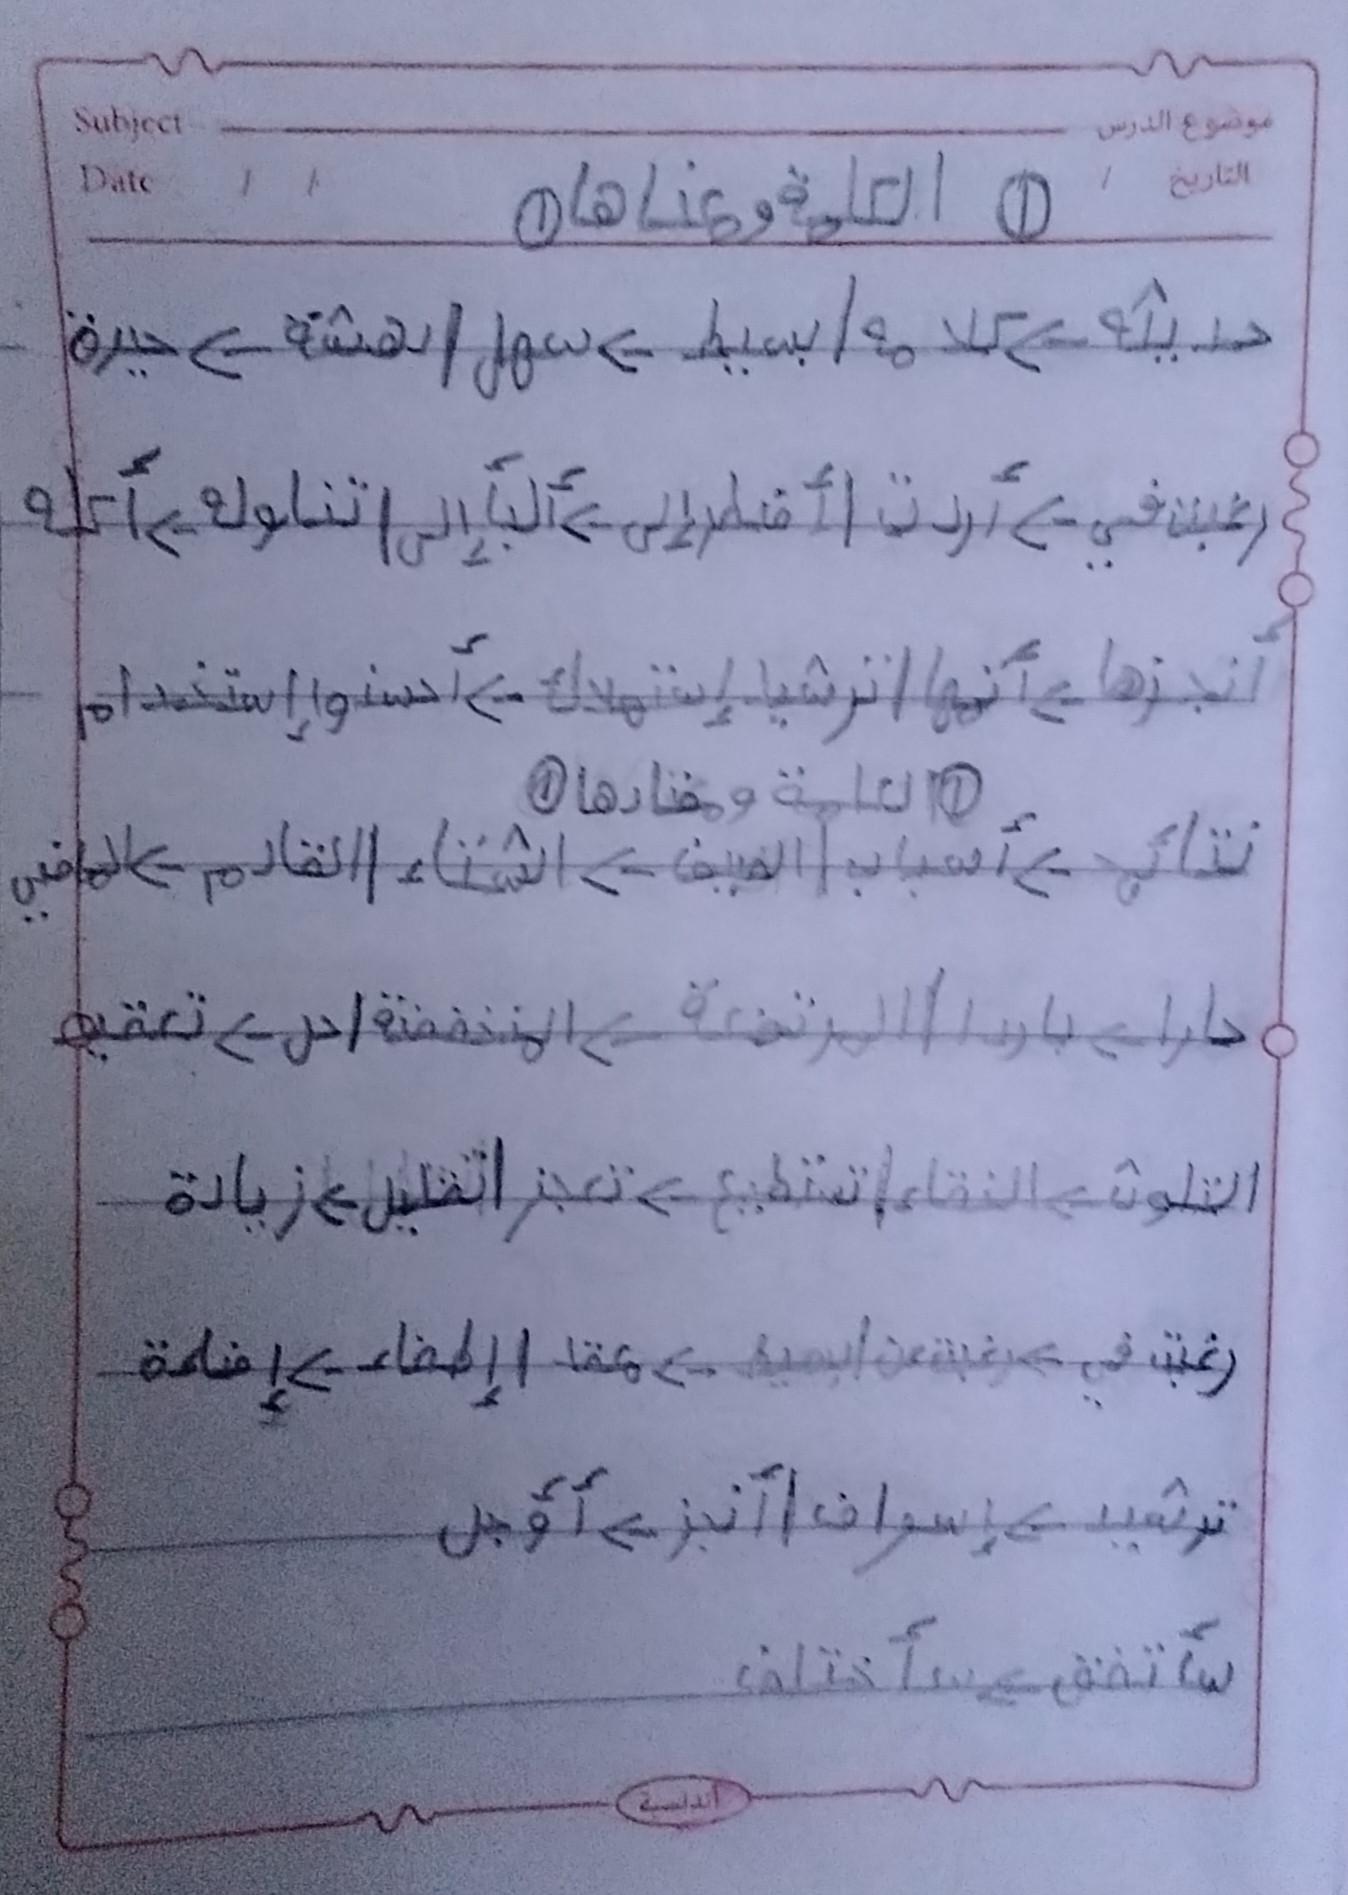 Subject موضوع الدرس
Date / / التاريخ /
① الكلمة ومعناها ①
حديثه > كلامه / بسيط > سهل / دهشة > حيرة
رغبت في > أردت / أضطر إلى > ألجأ إلى / تناوله > أكله
أنجزها > أنهها / ترشيد إستهلاك > أحسنوا إستخدام
① الكلمة وضادها ①
نتائج > أسباب / الصيف > الشتاء / القادم > الماضي
حارا > باردا / المرتفعة > المنخفضة / حل > تعقيد
التلوث > النقاء / تستطيع > تعجز / تقليل > زيادة
رغبت في > رغبت عن / بسيط > معقد / إطفاء > إضاءة
ترشيد > إسراف / أنجز > أؤجل
سأتفق > سأختلف
أندلسية